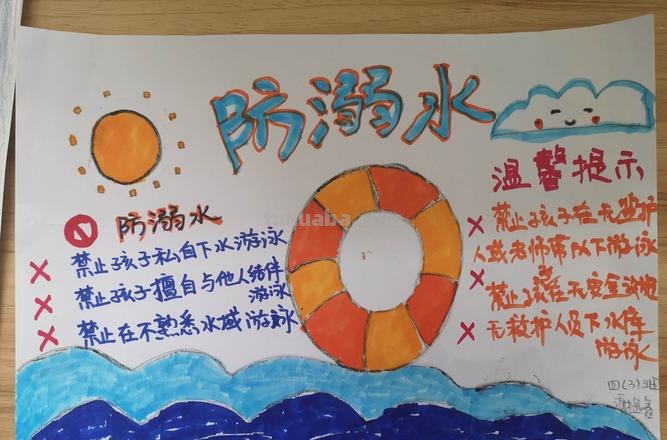 防溺水
温馨提示
防溺水
禁止孩子私自下水游泳
禁止孩子擅自与他人结伴
游泳
禁止在不熟悉水域游泳
禁止孩子在无监护
人或老师带队下游泳
禁止孩在无安全设施
无救护人员下水库
游泳
四(3)班